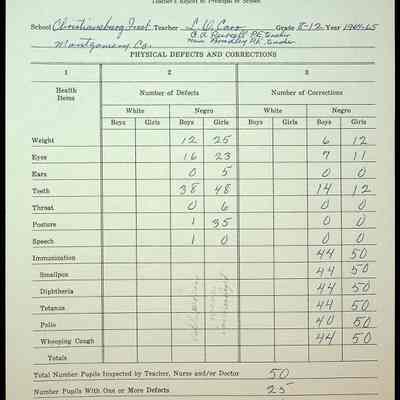 Teacher's Report to Principal of School
School Christiansburg Inst. Teacher L. V. Carr Grade 8-12 Year 1964-65
Montgomery Co. P.E. Teacher
Bradley P.E. Teacher
PHYSICAL DEFECTS AND CORRECTIONS
1 2 3
Health Items Number of Defects Number of Corrections
White Negro White Negro
Boys Girls Boys Girls Boys Girls Boys Girls
Weight 12 25 6 12
Eyes 16 23 7 11
Ears 0 5 0 0
Teeth 38 48 14 12
Throat 0 6 0 0
Posture 1 35 0 0
Speech 1 0 0 0
Immunization 44 50
Smallpox 44 50
Diphtheria 44 50
Tetanus 44 50
Polio 40 50
Whooping Cough 44 50
Totals
Total Number Pupils Inspected by Teacher, Nurse and/or Doctor 50
Number Pupils With One or More Defects 25